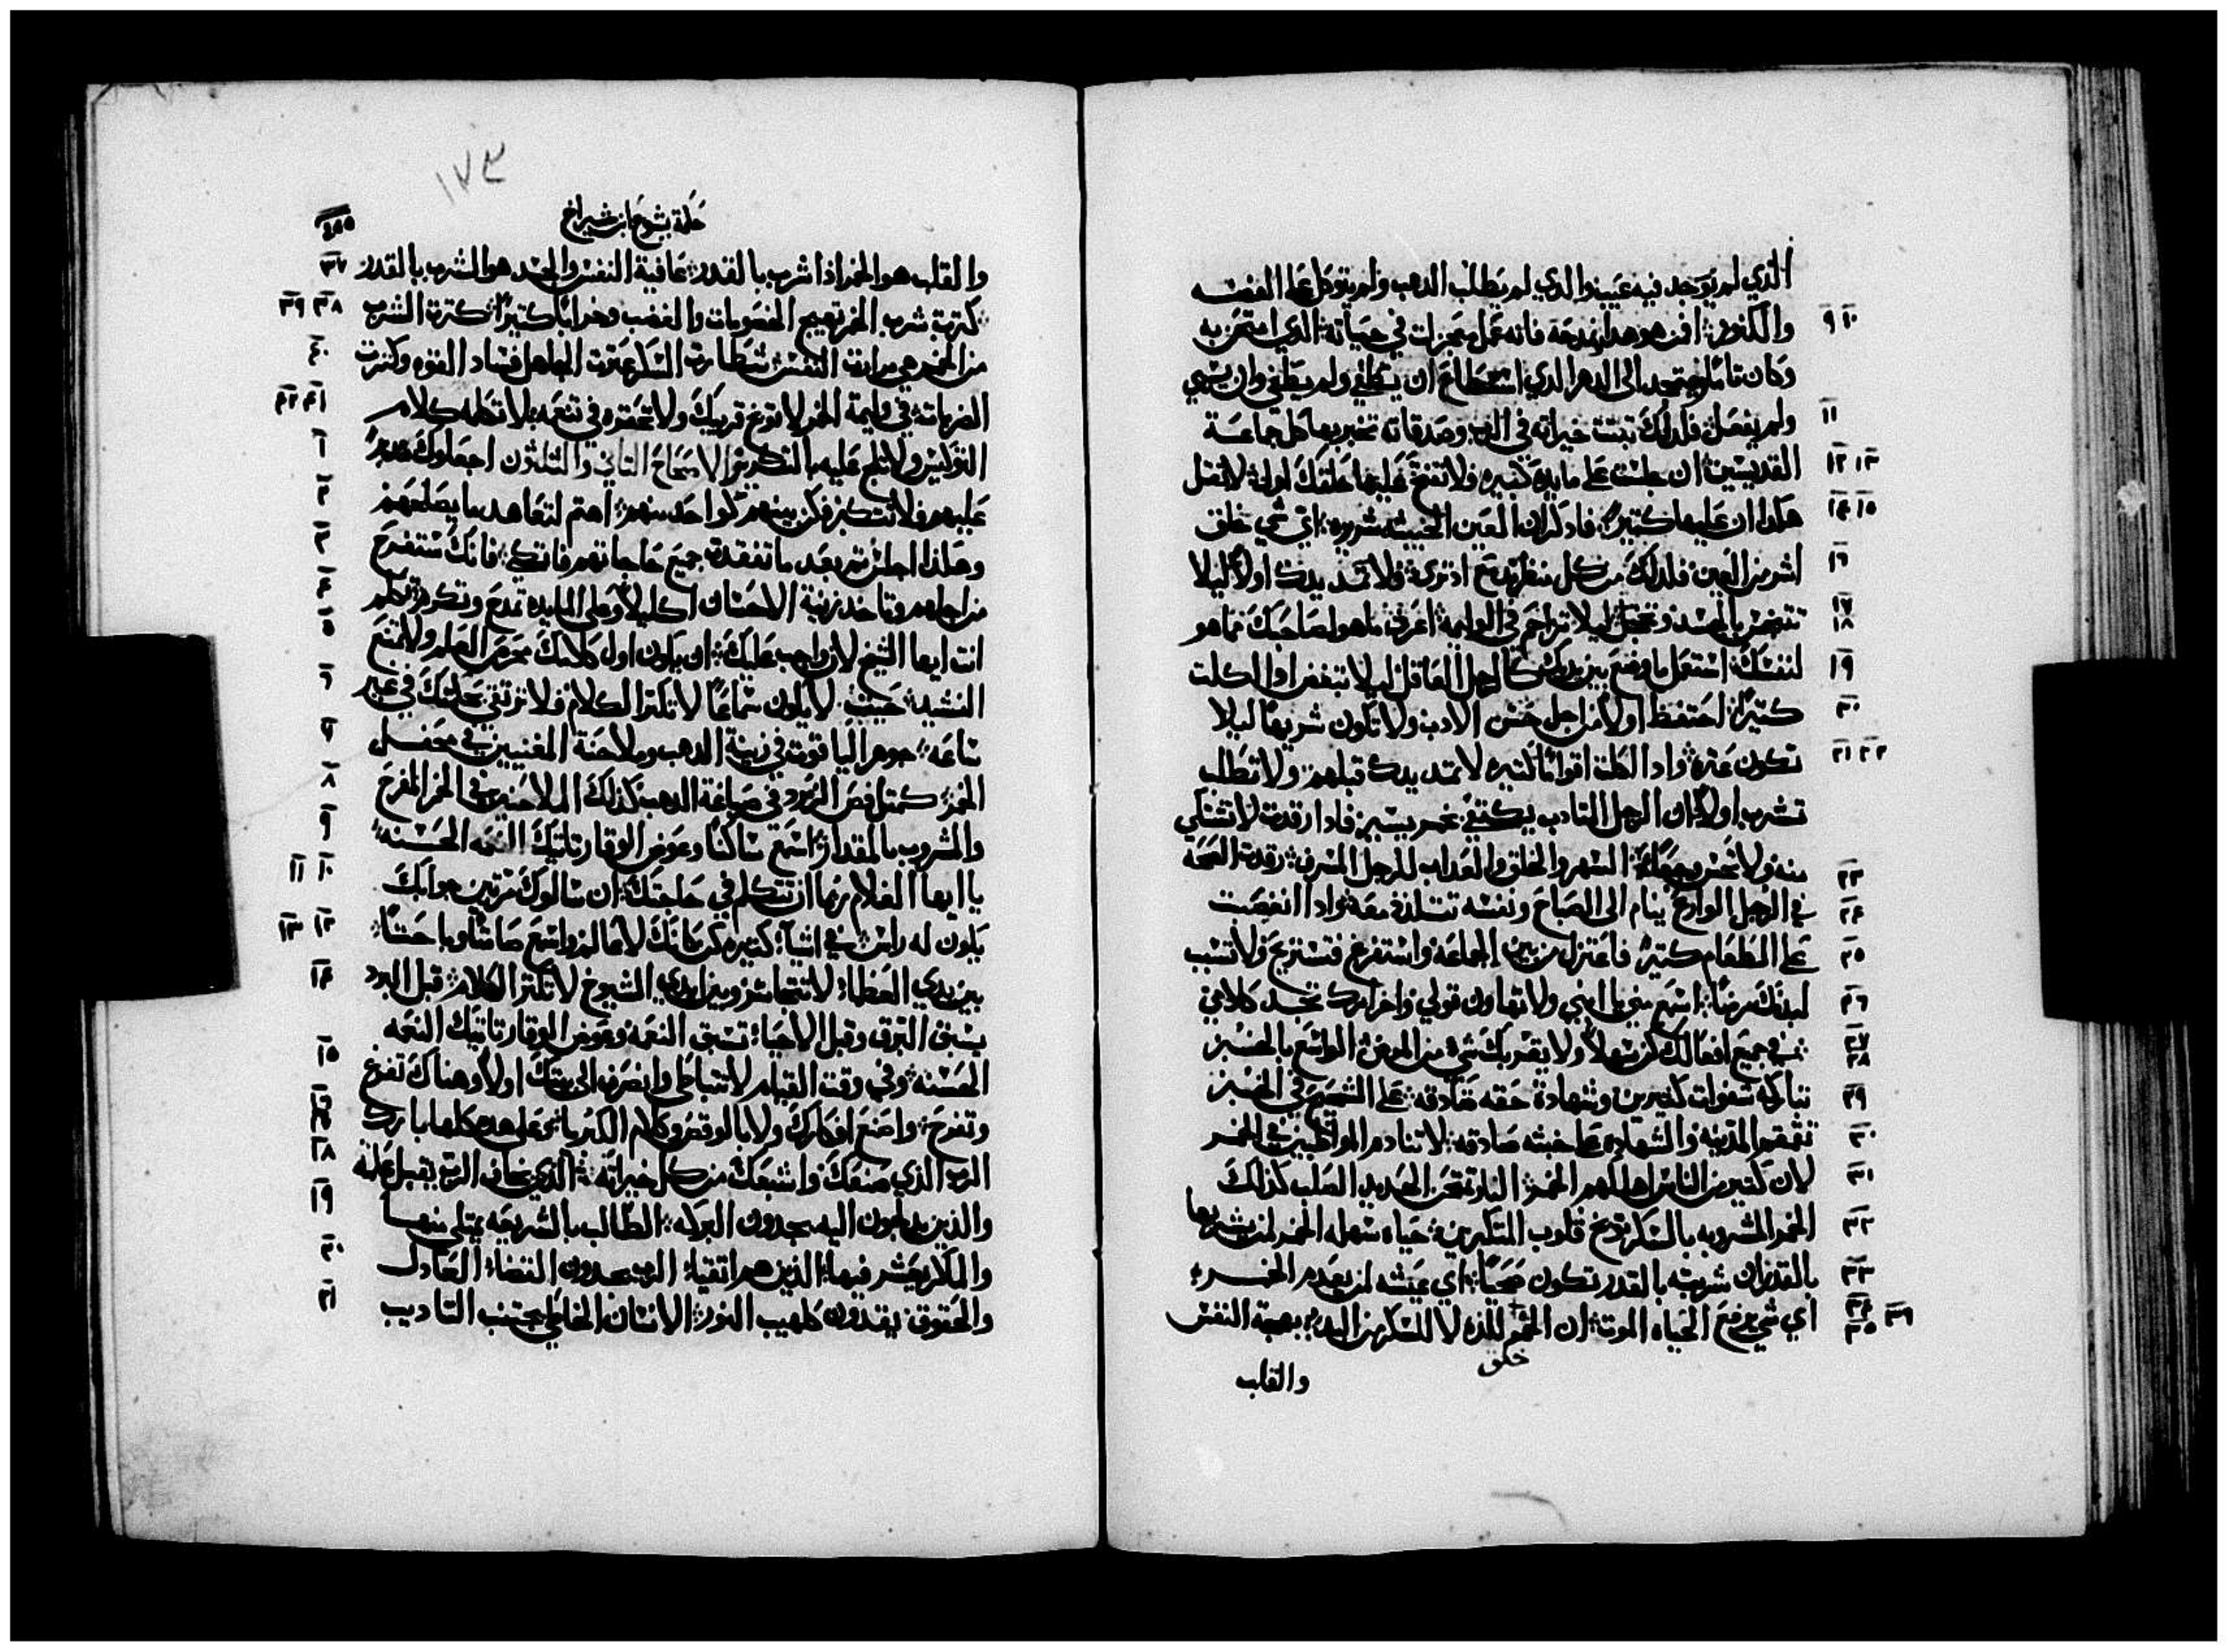 الذي لم يوجد فيه عيب والذي لم يطلب الدهب ولم يتوكل على الفضه
والكنوز: افمن هو هدا نمدحه فانه عمل معجزات في حياته: الذي امتحن به
وكان تاما فيتمجد الى الدهر الدي استطاع ان يطغي ولم يطغى وان يسي
ولم يفعل: فلدلك تبتت خيراته في الرب وصدقاته تخبر بها كل جماعة
القديسين: ان جلست على مايده كتيره فلا تفتح عليها حلقك اولا: لا تقل
هكدا ان عليها كتير: فادكر ان العين الخبيثه شريره: اي شي خلق
اشر من العين فلدلك من كل منظر تدمع ادا ترى: فلا تمد يدك اولا ليلا
تتنجس بالحسد وتخجل ليلا تزاحم في الوليمه: اعرف ما هو لصاحبك مما هو
لنفسك: استعمل ما وضع بين يديك كالرجل العاقل ليلا تبغض ادا اكلت
كتيرا: احتفظ اولا من اجل حسن الادب ولا تكون شريها ليلا
تكون عتره: وادا اكلت مع اقوام كتيره لا تمد يدك قبلهم ولا تطلب
تشرب اولا: ان الرجل المتادب يكتفي بخمر يسير فادا رقدت لا تشتكي
منه ولا تحس وجعا: السهر والحلق والعداب للرجل الشره: رقدت الصحه
في الرجل الوادع ينام الى الصباح ونفسه تتلذد معه: وادا انغصبت
على الطعام كتير فاعتزل من بين الجماعه واستفرغ فتستريح ولا تسبب
لبدنك مرضا: اسمع مني يا ابني ولا تهاون قولي واخرا تجد كلامي:
في جميع افعالك كن سهلا ولا يقربك شي من المرض: الواسع بالخبز
تباركه شفوات كتيرين وشهادة حقه صادقه: على الشحيح في الخبز
تقمقم المدينه والشهاده على خبثه صادقه: لا تنادم المواظبين في الخمر
لان كتير من الناس اهلكهم الخمر: النار تمتحن الحديد الصلب كدلك
الخمر المشروبه بالسكر توبخ قلوب المتكبرين: حياه سهله الخمر لمن يشربها
بالقدر ان شربته بالقدر تكون صحيا: اي عيشه لمن يعدم الخمر:
اي شي يدفع الحياه الموت: ان الخمر خلق للذه لا للسكر من البدء: بهجة النفس
والقلب
١٧٣
حكمة يشوع ابن شيراخ
والقلب هو الخمر ادا شرب بالقدر: عافية النفس والجسد هو الشرب بالقدر
كترت شرب الخمر تهيج الخصومات والغضب وخرابا كتيرا: كترت الشرب
من الخمر هي مرارت النفس: شطارت السكر عترت الجاهل فساد القوه وكترت
الضربات: في وليمة الخمر لا توبخ قريبك ولا تحتقره في تنعمه: لا تكلمه كلام
التوليس ولا تلج عليه بالتكرير: الاصحاح التاني والتلتون اجعلوك مدبرا
عليهم فلا تتكبر فكن بينهم كواحد منهم: اهتم لتعاهد ما يصلحهم
وهكدا اجلس تم بعد ما تفقدت جميع حاجاتهم فاتكي: فانك ستفرح
من اجلهم وتاخد زينة الاحسان اكليلا وعلى المايده تمدح وتكرم: تكلم
انت ايها الشيخ لانه واجب عليك: ان يكون اول كلامك بحرص العلم ولا تمنع
النشيد: حيث لا يكون سماعا لا تكتر الكلام فلا ترتفع بحكمتك في غير
ساعه: جوهر الياقوت في زينة الدهب وملاحنة المغنيين في محفل
الخمر: كمتل فص الزمرد في صياغة الدهب كدلك الملاحنه في الخمر المفرح
والمشروب بالمقدار: اسمع ساكتا وعوض الوقار تاتيك النعمه الحسنه:
يا ايها الغلام ربما ان تتكلم في حاجتك: ان سالوك مرتين جوابك
يكون له راس: في اشيا كتيره كن كانك لا عالم واسمع صامتا وباحتا:
بين يدي العظما: لا تتجاسر وبين ايدي الشيوخ لا تكتر الكلام: قبل البرد
يسبق البرق وقبل الاحيا تسبق النعمه وعوض الوقار تاتيك النعمه
الحسنه: وفي وقت القيام لا تتباطي وانصرف الى بيتك اولا وهناك تفرغ
وتفرح: واصنع افكارك ولا بالوقص وكلام الكبريا: وعلى هده كلها بارك
الرب الذي صنعك واشبعك من كل خيراته: الذي يخاف الرب يقبل علمه
والذين يدلجون اليه يجدون البركه: الطالب بالشريعه يمتلي منها
والماكر يعشر فيها: الذين هم اتقيا: الرب يجدون القضا: العادل
والحقوق يقدون كلهيب النور: الانسان الخاطي يجتنب التاديب